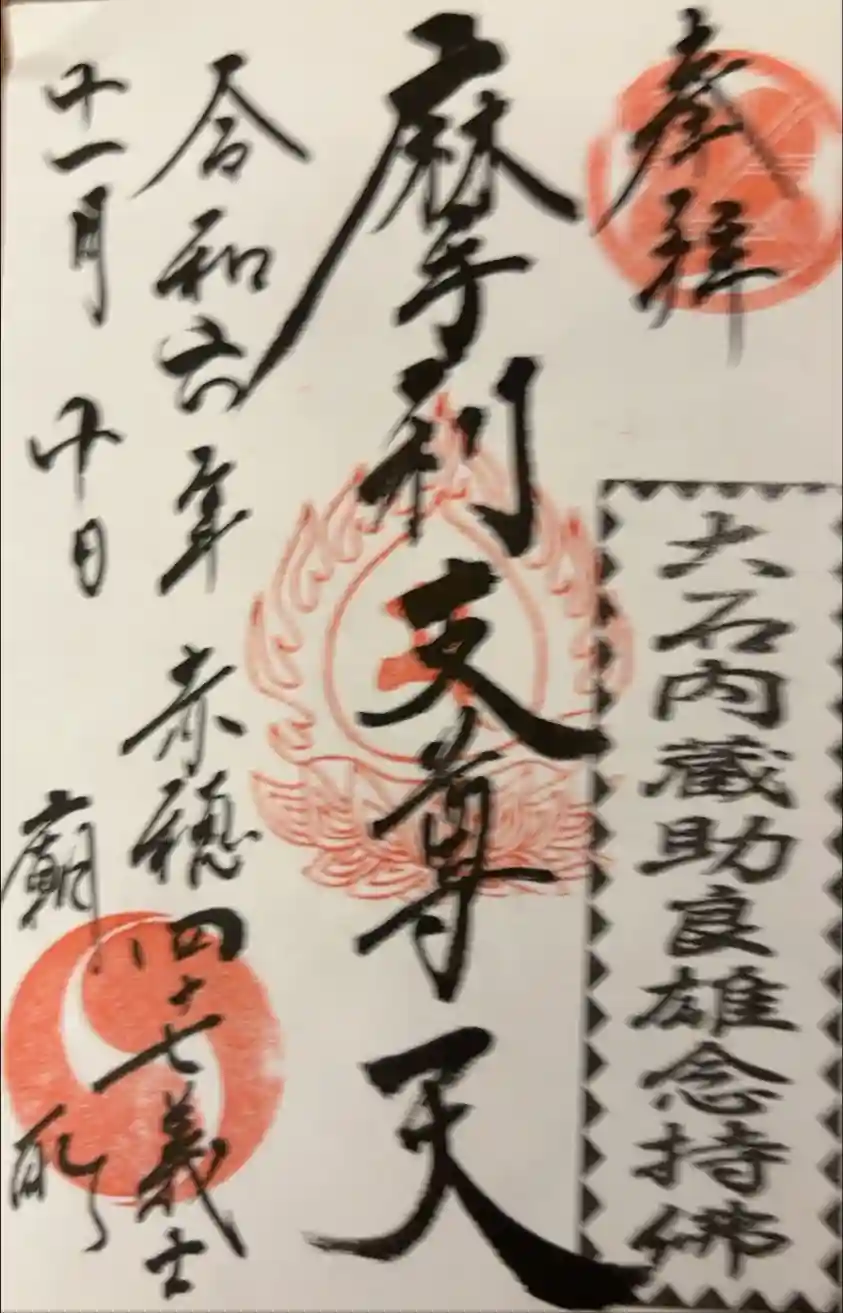 奉拝
大石内蔵助良雄念持佛
摩利支尊天
令和六年
十一月 十日
赤穂四十七義士
廟所